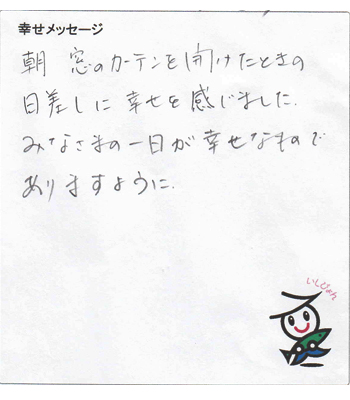 幸せメッセージ
朝 窓のカーテンを開けたときの
日差しに幸せを感じました.
みなさまの一日が幸せなもので
ありますように.
いしぴょん